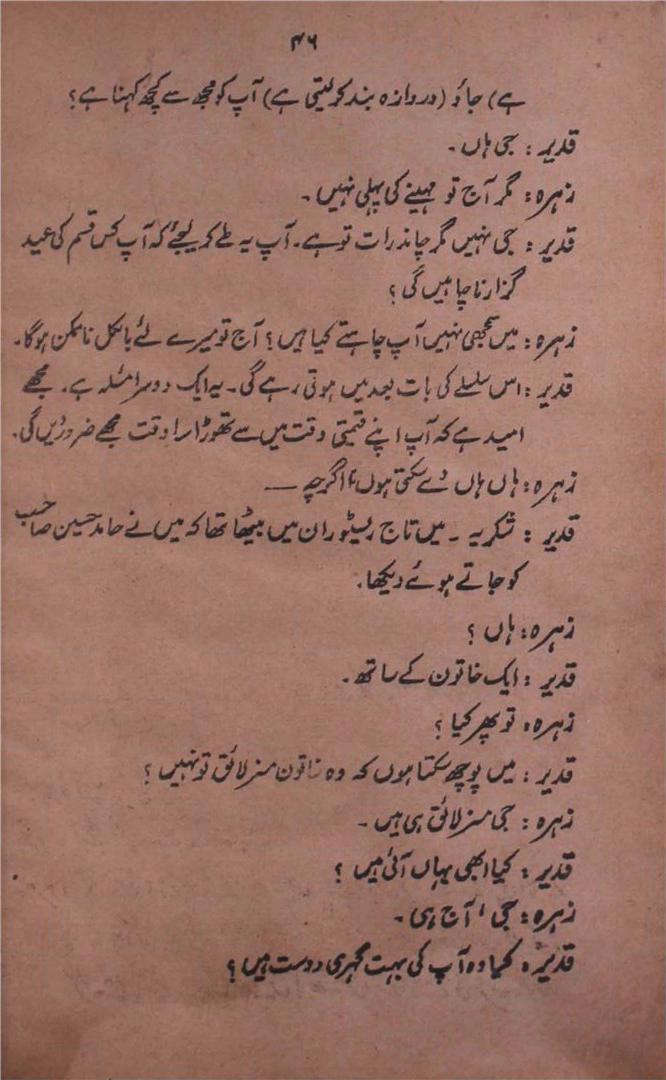 ۴۶
ہے) جاؤ (دروازہ بند کر لیتی ہے) آپ کو مجھ سے کچھ کہنا ہے؟
قدیر : جی ہاں ۔
زہرہ : مگر آج تو مہینے کی پہلی نہیں ۔
قدیر : جی نہیں مگر چاند رات تو ہے ۔ آپ یہ طے کر لیجئے کہ آپ کس قسم کی عید
گزارنا چاہیں گی ؟
زہرہ : میں سمجھی نہیں آپ چاہتے کیا ہیں ؟ آج تو میرے لئے بالکل ناممکن ہوگا۔
قدیر : اس سلسلے کی بات بعد میں ہوتی رہے گی ۔ یہ ایک دوسرا مسئلہ ہے۔ مجھے
امید ہے کہ آپ اپنے قیمتی وقت میں سے تھوڑا سا وقت مجھے ضرور دیں گی۔
زہرہ : ہاں ہاں دے سکتی ہوں، اگرچہ ——
قدیر : شکریہ ۔ میں تاج ریسٹوران میں بیٹھا تھا کہ میں نے حامد حسین صاحب
کو جاتے ہوئے دیکھا۔
زہرہ : ہاں ؟
قدیر : ایک خاتون کے ساتھ ۔
زہرہ : تو پھر کیا ؟
قدیر : میں پوچھ سکتا ہوں کہ وہ خاتون مسز لائق تو نہیں ؟
زہرہ : جی مسز لائق ہی ہیں ۔
قدیر : کیا ابھی یہاں آئی ہیں ؟
زہرہ : جی ، آج ہی ۔
قدیر : کیا وہ آپ کی بہت گہری دوست ہیں ؟